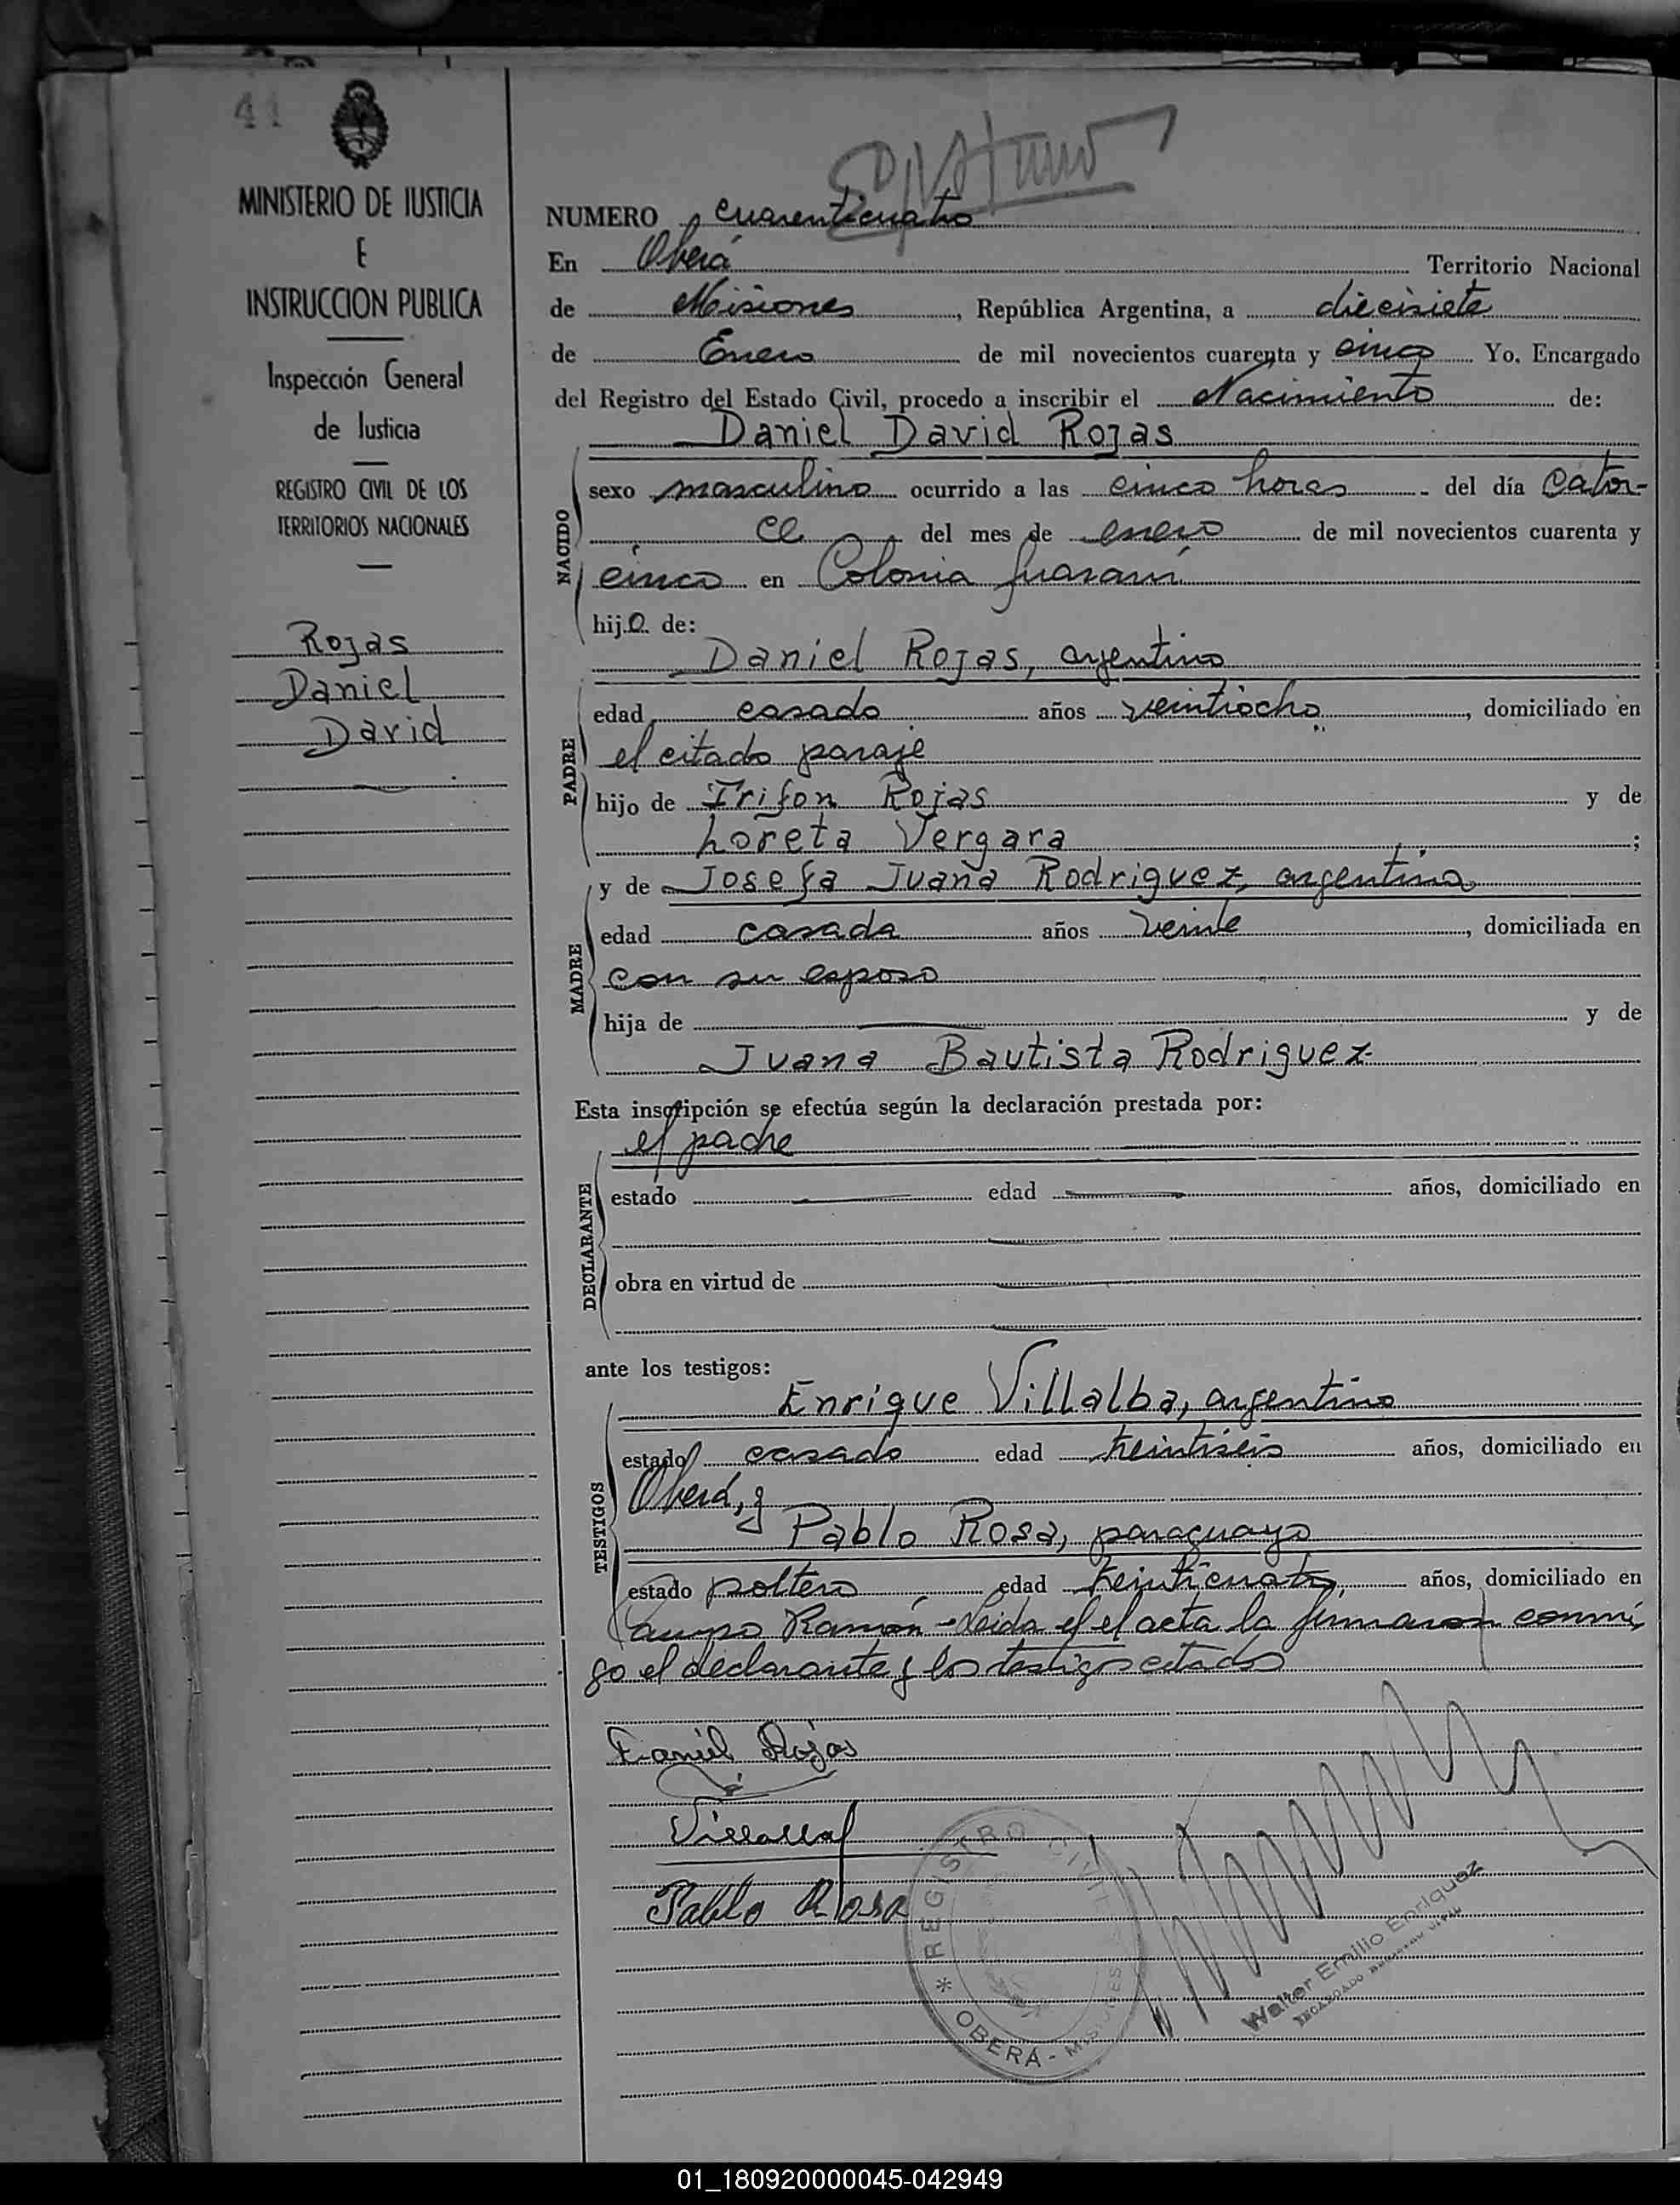 41
MINISTERIO DE JUSTICIA
E
INSTRUCCION PUBLICA
Inspección General
de Justicia
REGISTRO CIVIL DE LOS
TERRITORIOS NACIONALES
Rojas
Daniel
David
NUMERO cuarenticuatro
En Oberá Territorio Nacional
de Misiones, República Argentina, a diecisiete
de Enero de mil novecientos cuarenta y cinco Yo, Encargado
del Registro del Estado Civil, procedo a inscribir el Nacimiento de:
Daniel David Rojas
NACIDO
sexo masculino ocurrido a las cinco horas del día cator-
ce del mes de enero de mil novecientos cuarenta y
cinco en Colonia Guaraní
hijo de:
Daniel Rojas, argentino
PADRE
edad casado años veintiocho, domiciliado en
el citado paraje
hijo de Trifon Rojas y de
Loreta Vergara ;
MADRE
y de Josefa Juana Rodriguez, argentina
edad casada años veinte, domiciliada en
con su esposo
hija de y de
Juana Bautista Rodriguez
Esta inscripción se efectúa según la declaración prestada por:
el padre
DECLARANTE
estado edad años, domiciliado en
obra en virtud de
ante los testigos:
Enrique Villalba, argentino
TESTIGOS
estado casado edad treintiseis años, domiciliado en
Oberá, y
Pablo Rosa, paraguayo
estado soltero edad treinticuatro, años, domiciliado en
Campo Ramón - Leida el acta la firmaron conmi
go el declarante y los testigos citados
Daniel Rojas
Pablo Rosa
* REGISTRO CIVIL
OBERÁ - MISIONES
Walter Emilio Enriquez
01_180920000045-042949